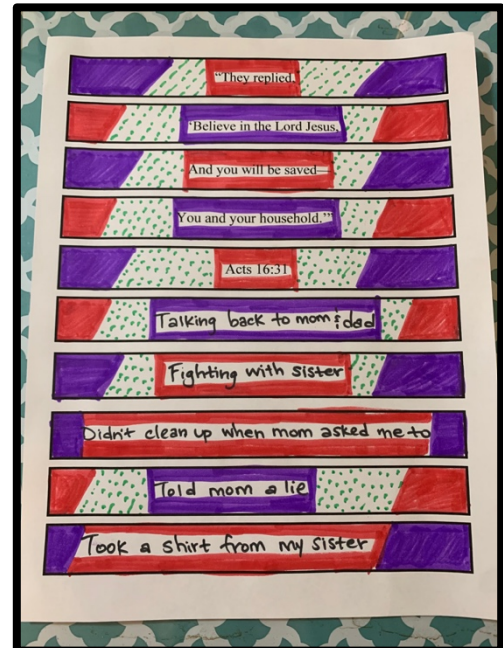 “They replied,
‘Believe in the Lord Jesus,
And you will be saved—
You and your household.’”
Acts 16:31
Talking back to mom & dad
Fighting with sister
Didn't clean up when mom asked me to
Told mom a lie
Took a shirt from my sister